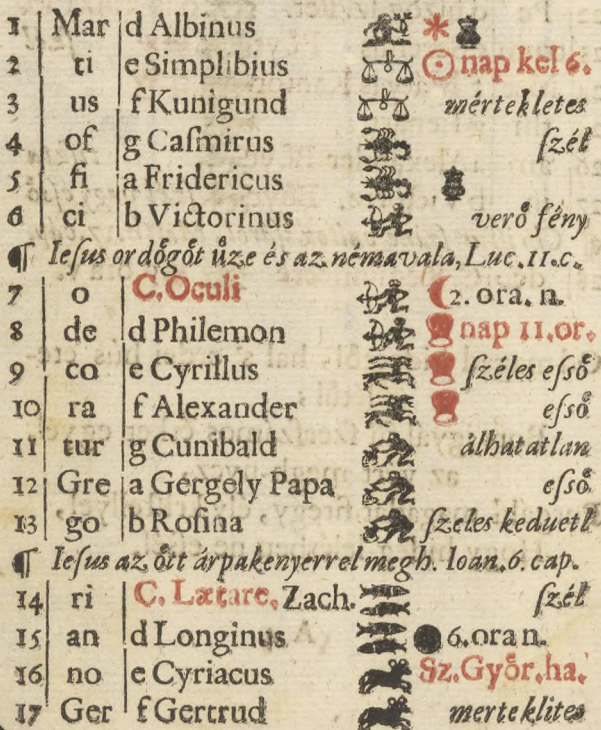 1 Mar d Albinus
2 ti e Simplibius nap kel 6.
3 us f Kunigund mértekletes
4 of g Caſmirus ſzél
5 fi a Fridericus
6 ci b Victorinus verő fény
¶ Ieſus ordőgőt űze és az némavala, Luc. 11. c.
7 o C. Oculi 2. ora. n.
8 de d Philemon nap 11. or.
9 co e Cyrillus ſzéles eſső
10 ra f Alexander eſső
11 tur g Cunibald álhatatlan
12 Gre a Gergely Papa eſső
13 go b Roſina ſzeles keduetl
¶ Ieſus az őtt árpakenyerrel megh. Ioan. 6. cap.
14 ri C. Lætare, Zach. ſzél
15 an d Longinus 6. ora n.
16 no e Cyriacus Sz. Győr. ha.
17 Ger f Gertrud merteklites